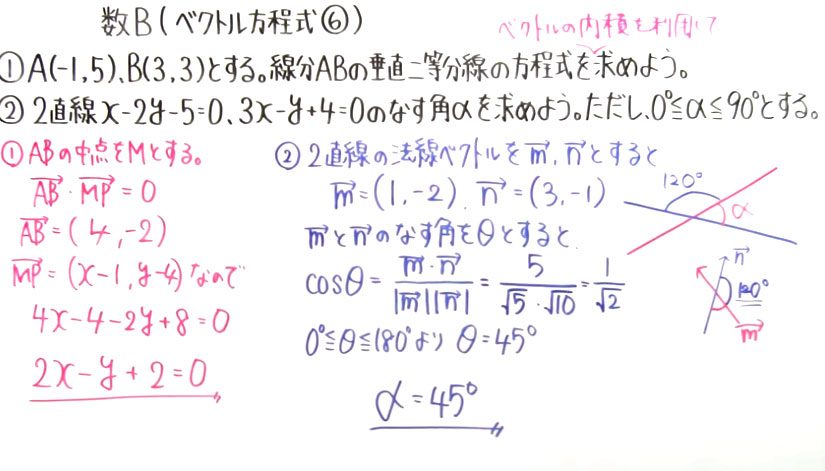 数B(ベクトル方程式⑥)
ベクトルの内積を利用!?
①A(-1,5)、B(3,3)とする。線分ABの垂直二等分線の方程式を求めよう。
②2直線x-2y-5=0、3x-y+4=0のなす角αを求めよう。ただし、0°≦α≦90°とする。
①ABの中点をMとする。
AB・MP=0
AB=(4,-2)
MP=(x-1,y-4)なので
4x-4-2y+8=0
2x-y+2=0
②2直線の法線ベクトルをm,nとすると
m=(1,-2).n=(3,-1)
mとnのなす角をθとすると
cosθ=m・n/|m||n|=5/√5・√10=1/√2
0°≦θ≦180°より θ=45°
α=45°
120°
α
n
120°
m